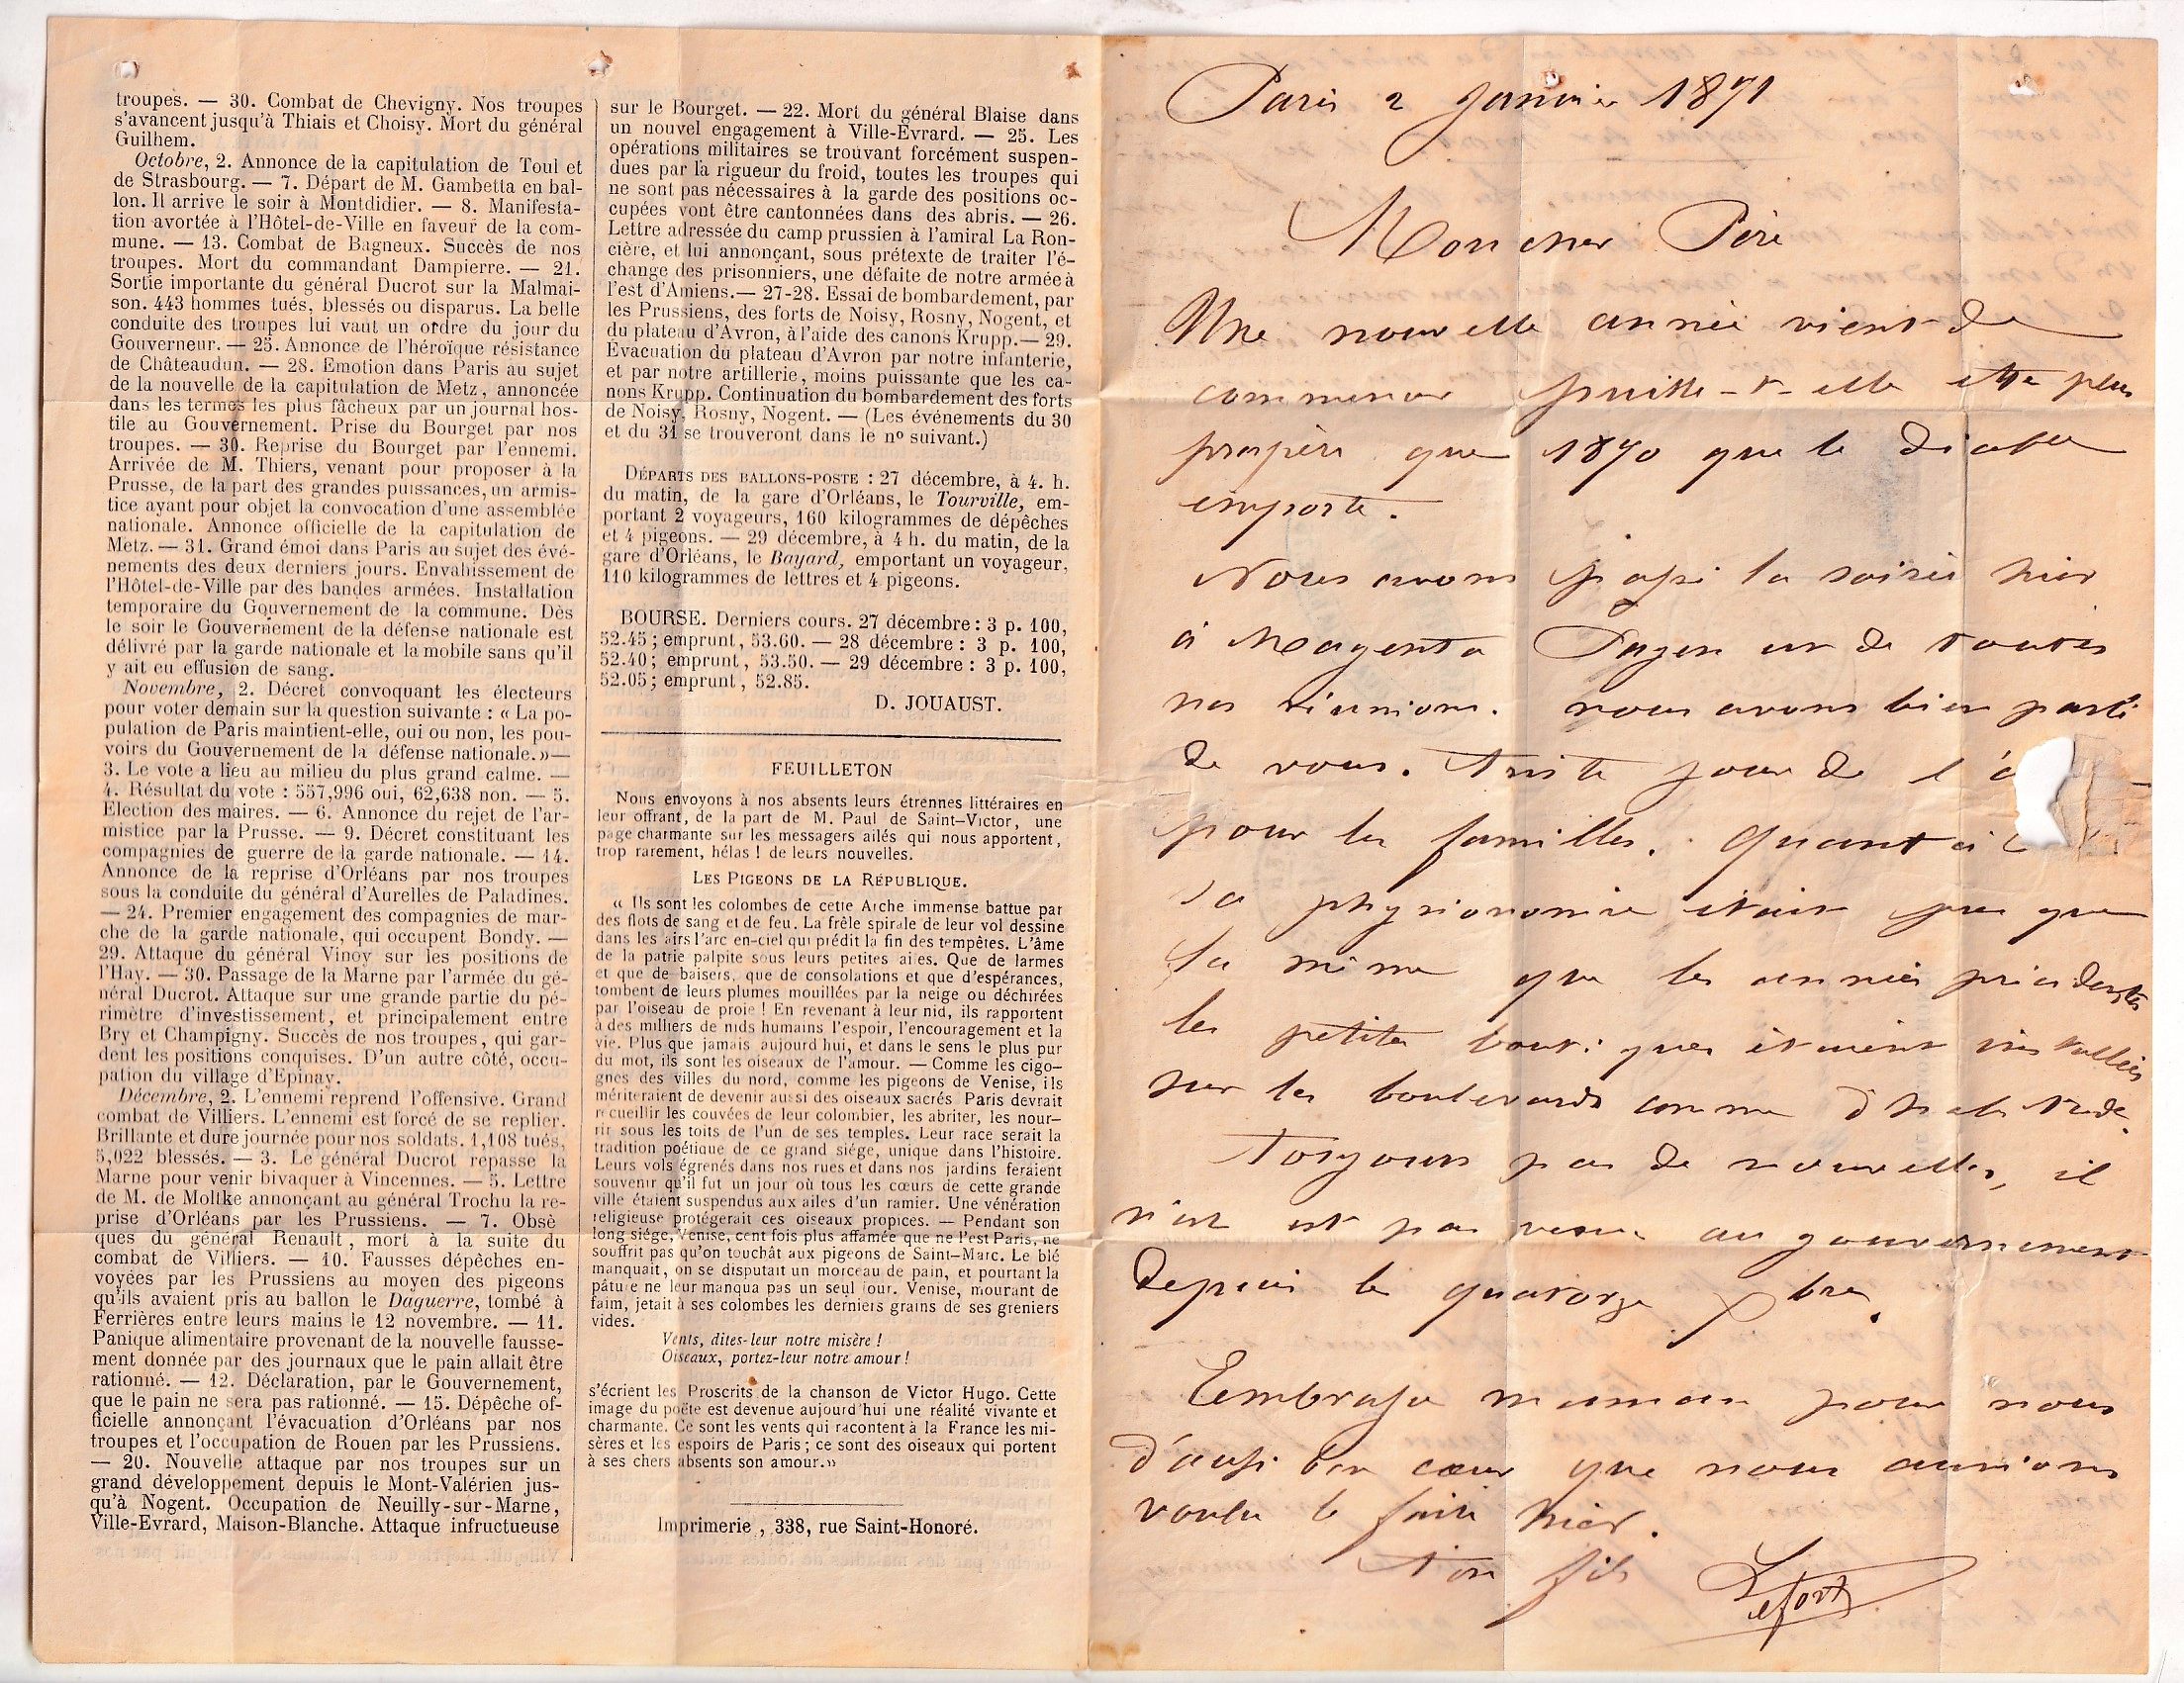 troupes. — 30. Combat de Chevigny. Nos troupes
s'avancent jusqu'à Thiais et Choisy. Mort du général
Guilhem.
Octobre, 2. Annonce de la capitulation de Toul et
de Strasbourg. — 7. Départ de M. Gambetta en bal-
lon. Il arrive le soir à Montdidier. — 8. Manifesta-
tion avortée à l'Hôtel-de-Ville en faveur de la com-
mune. — 13. Combat de Bagneux. Succès de nos
troupes. Mort du commandant Dampierre. — 21.
Sortie importante du général Ducrot sur la Malmai-
son. 443 hommes tués, blessés ou disparus. La belle
conduite des troupes lui vaut un ordre du jour du
Gouverneur. — 25. Annonce de l'héroïque résistance
de Châteaudun. — 28. Emotion dans Paris au sujet
de la nouvelle de la capitulation de Metz, annoncée
dans les termes les plus fâcheux par un journal hos-
tile au Gouvernement. Prise du Bourget par nos
troupes. — 30. Reprise du Bourget par l'ennemi.
Arrivée de M. Thiers, venant pour proposer à la
Prusse, de la part des grandes puissances, un armis-
tice ayant pour objet la convocation d'une assemblée
nationale. Annonce officielle de la capitulation de
Metz. — 31. Grand émoi dans Paris au sujet des évé-
nements des deux derniers jours. Envahissement de
l'Hôtel-de-Ville par des bandes armées. Installation
temporaire du Gouvernement de la commune. Dès
le soir le Gouvernement de la défense nationale est
délivré par la garde nationale et la mobile sans qu'il
y ait eu effusion de sang.
Novembre, 2. Décret convoquant les électeurs
pour voter demain sur la question suivante : « La po-
pulation de Paris maintient-elle, oui ou non, les pou-
voirs du Gouvernement de la défense nationale.» —
3. Le vote a lieu au milieu du plus grand calme. —
4. Résultat du vote : 557,996 oui, 62,638 non. — 5.
Election des maires. — 6. Annonce du rejet de l'ar-
mistice par la Prusse. — 9. Décret constituant les
compagnies de guerre de la garde nationale. — 14.
Annonce de la reprise d'Orléans par nos troupes
sous la conduite du général d'Aurelles de Paladines.
— 24. Premier engagement des compagnies de mar-
che de la garde nationale, qui occupent Bondy. —
29. Attaque du général Vinoy sur les positions de
l'Hay. — 30. Passage de la Marne par l'armée du gé-
néral Ducrot. Attaque sur une grande partie du pé-
rimètre d'investissement, et principalement entre
Bry et Champigny. Succès de nos troupes, qui gar-
dent les positions conquises. D'un autre côté, occu-
pation du village d'Epinay.
Décembre, 2. L'ennemi reprend l'offensive. Grand
combat de Villiers. L'ennemi est forcé de se replier.
Brillante et dure journée pour nos soldats. 1,108 tués,
5,022 blessés. — 3. Le général Ducrot repasse la
Marne pour venir bivaquer à Vincennes. — 5. Lettre
de M. de Moltke annonçant au général Trochu la re-
prise d'Orléans par les Prussiens. — 7. Obsè
ques du général Renault, mort à la suite du
combat de Villiers. — 10. Fausses dépêches en-
voyées par les Prussiens au moyen des pigeons
qu'ils avaient pris au ballon le Daguerre, tombé à
Ferrières entre leurs mains le 12 novembre. — 11.
Panique alimentaire provenant de la nouvelle fausse-
ment donnée par des journaux que le pain allait être
rationné. — 12. Déclaration, par le Gouvernement,
que le pain ne sera pas rationné. — 15. Dépêche of-
ficielle annonçant l'évacuation d'Orléans par nos
troupes et l'occupation de Rouen par les Prussiens.
— 20. Nouvelle attaque par nos troupes sur un
grand développement depuis le Mont-Valérien jus-
qu'à Nogent. Occupation de Neuilly-sur-Marne,
Ville-Evrard, Maison-Blanche. Attaque infructueuse
sur le Bourget. — 22. Mort du général Blaise dans
un nouvel engagement à Ville-Evrard. — 25. Les
opérations militaires se trouvant forcément suspen-
dues par la rigueur du froid, toutes les troupes qui
ne sont pas nécessaires à la garde des positions oc-
cupées vont être cantonnées dans des abris. — 26.
Lettre adressée du camp prussien à l'amiral La Ron-
cière, et lui annonçant, sous prétexte de traiter l'é-
change des prisonniers, une défaite de notre armée à
l'est d'Amiens. — 27-28. Essai de bombardement, par
les Prussiens, des forts de Noisy, Rosny, Nogent, et
du plateau d'Avron, à l'aide des canons Krupp. — 29.
Evacuation du plateau d'Avron par notre infanterie,
et par notre artillerie, moins puissante que les ca-
nons Krupp. Continuation du bombardement des forts
de Noisy, Rosny, Nogent. — (Les événements du 30
et du 31 se trouveront dans le nº suivant.)
DÉPARTS DES BALLONS-POSTE : 27 décembre, à 4. h.
du matin, de la gare d'Orléans, le Tourville, em-
portant 2 voyageurs, 160 kilogrammes de dépêches
et 4 pigeons. — 29 décembre, à 4 h. du matin, de la
gare d'Orléans, le Bayard, emportant un voyageur,
110 kilogrammes de lettres et 4 pigeons.
BOURSE. Derniers cours. 27 décembre : 3 p. 100,
52.45 ; emprunt, 53.60. — 28 décembre : 3 p. 100,
52.40 ; emprunt, 53.50. — 29 décembre : 3 p. 100,
52.05 ; emprunt, 52.85.
D. JOUAUST.
FEUILLETON
Nous envoyons à nos absents leurs étrennes littéraires en
leur offrant, de la part de M. Paul de Saint-Victor, une
page charmante sur les messagers ailés qui nous apportent,
trop rarement, hélas ! de leurs nouvelles.
LES PIGEONS DE LA RÉPUBLIQUE.
« Ils sont les colombes de cette Arche immense battue par
des flots de sang et de feu. La frêle spirale de leur vol dessine
dans les airs l'arc en-ciel qui prédit la fin des tempêtes. L'âme
de la patrie palpite sous leurs petites ailes. Que de larmes
et que de baisers, que de consolations et que d'espérances,
tombent de leurs plumes mouillées par la neige ou déchirées
par l'oiseau de proie ! En revenant à leur nid, ils rapportent
à des milliers de nids humains l'espoir, l'encouragement et la
vie. Plus que jamais aujourd'hui, et dans le sens le plus pur
du mot, ils sont les oiseaux de l'amour. — Comme les cigo-
gnes des villes du nord, comme les pigeons de Venise, ils
mériteraient de devenir aussi des oiseaux sacrés Paris devrait
recueillir les couvées de leur colombier, les abriter, les nour-
rir sous les toits de l'un de ses temples. Leur race serait la
tradition poétique de ce grand siége, unique dans l'histoire.
Leurs vols égrenés dans nos rues et dans nos jardins feraient
souvenir qu'il fut un jour où tous les cœurs de cette grande
ville étaient suspendus aux ailes d'un ramier. Une vénération
religieuse protégerait ces oiseaux propices. — Pendant son
long siége, Venise, cent fois plus affamée que ne l'est Paris, ne
souffrit pas qu'on touchât aux pigeons de Saint-Marc. Le blé
manquait, on se disputait un morceau de pain, et pourtant la
pâture ne leur manqua pas un seul jour. Venise, mourant de
faim, jetait à ses colombes les derniers grains de ses greniers
vides.
Vents, dites-leur notre misère !
Oiseaux, portez-leur notre amour !
s'écrient les Proscrits de la chanson de Victor Hugo. Cette
image du poëte est devenue aujourd'hui une réalité vivante et
charmante. Ce sont les vents qui racontent à la France les mi-
sères et les espoirs de Paris ; ce sont des oiseaux qui portent
à ses chers absents son amour.»
Imprimerie, 338, rue Saint-Honoré.
Paris 2 Janvier 1871
Mon cher Père
Une nouvelle année vient de
commencer puisse-t-elle être plus
prospère que 1870 que le diable
emporte.
Nous avons passé la soirée hier
à Magenta Pagen et de toutes
nos réunions. nous avons bien parlé
de vous. Triste jour de l'a
pour les familles. Quant à
sa physionomie était presque
la même que les années précédentes
les petites boutiques étaient installées
sur les boulevards comme d'habitude.
Toujours pas de nouvelles, il
n'en est pas venu au gouvernement
depuis le quatorze Xbre.
Embrasse maman pour nous
d'aussi bon cœur que nous aurions
voulu le faire hier.
Ton fils Lefort